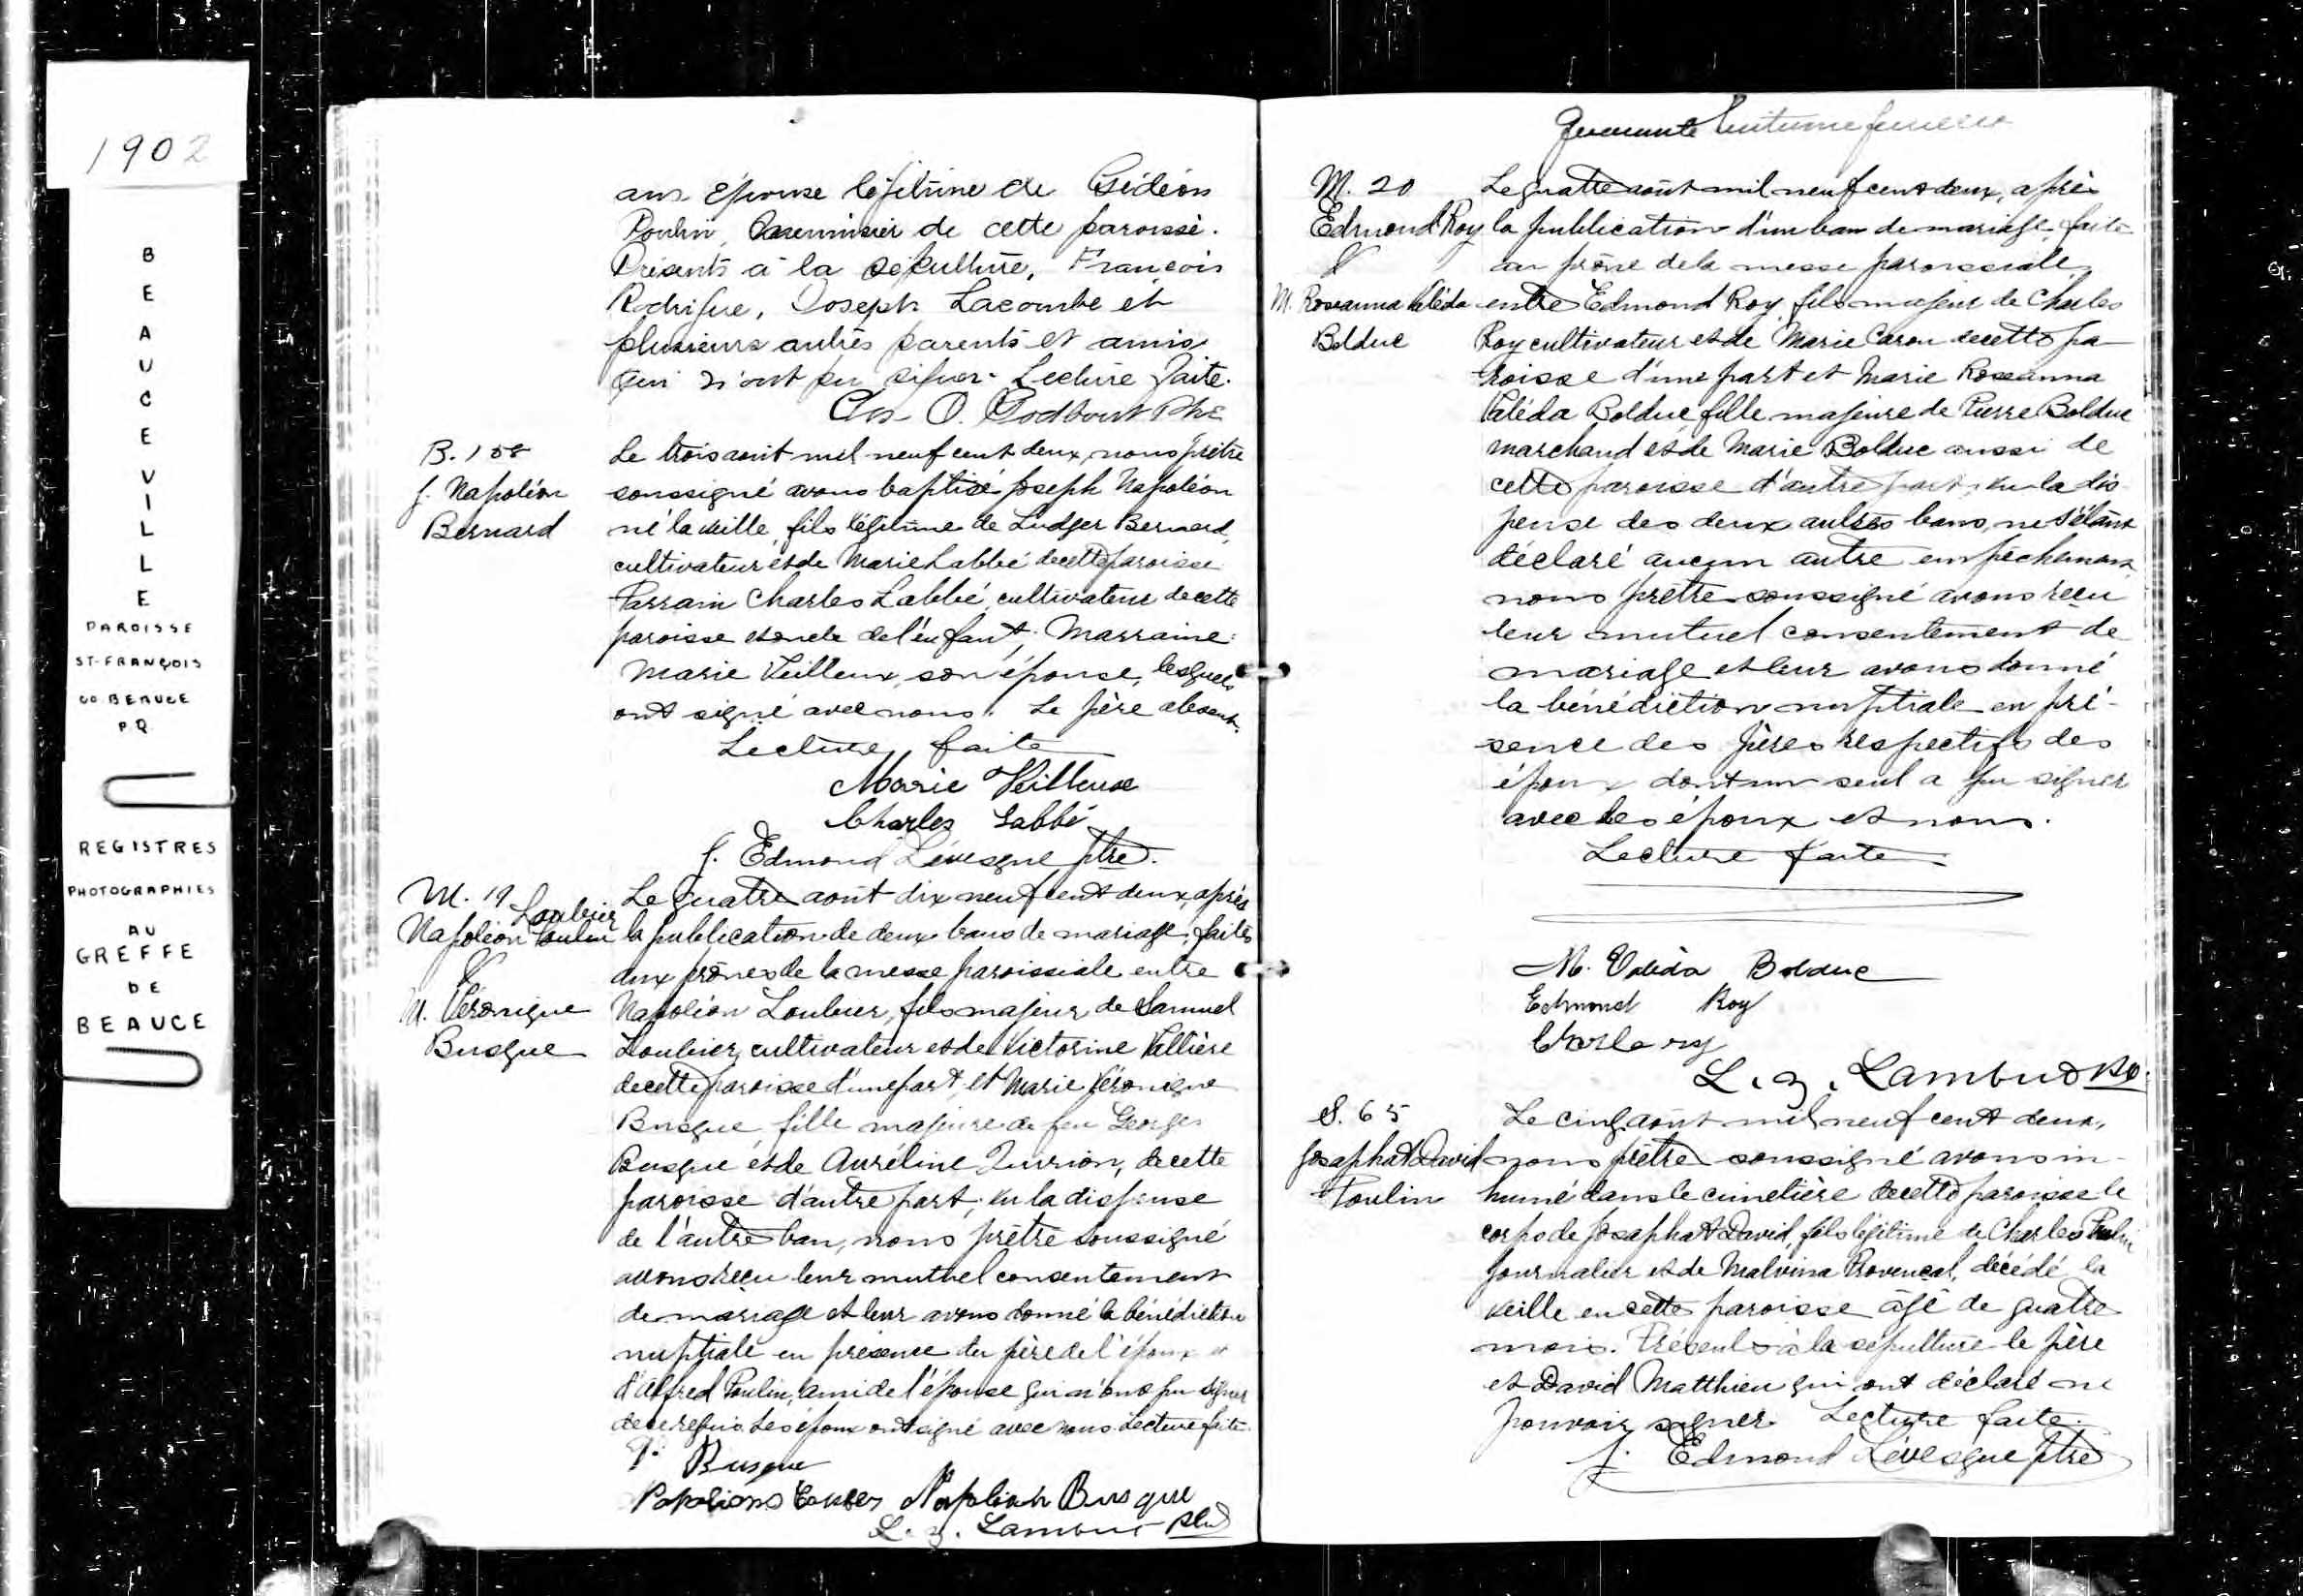 1902
BEAUCEVILLE
PAROISSE
ST-FRANÇOIS
CO. BEAUCE
P Q
REGISTRES
PHOTOGRAPHIES
AU
GREFFE
DE
BEAUCE
ans épouse légitime de Gédéon
Poulin, de cette paroisse.
Présents à la sépulture, François
Rodrigue, Joseph Lacombe et
plusieurs autres parents et amis
qui n'ont pu signer. Lecture faite.
Chs. O. Godbout Ptre
B. 158
J. Napoléon
Bernard
Le trois août mil neuf cent deux, nous prêtre
soussigné avons baptisé Joseph Napoléon
né la veille, fils légitime de Ludger Bernard,
cultivateur et de Marie Labbé de cette paroisse.
Parrain Charles Labbé, cultivateur de cette
paroisse et oncle de l'enfant; Marraine:
Marie Veilleux, son épouse, lesquels
ont signé avec nous. Le père absent.
Lecture faite
Marie Veilleux
Charles Labbé
J. Edmond Lévesque ptre.
M. 19
Loubier
Napoléon Poulin
&
M. Véronique
Busque
Le quatre août dix neuf cent deux, après
la publication de deux bans de mariage, faites
aux prônes de la messe paroissiale entre
Napoléon Loubier, fils majeur de Samuel
Loubier, cultivateur et de Victorine Vallière
de cette paroisse d'une part, et Marie Véronique
Busque, fille majeure de feu Georges
Busque et de Auréline Quirion, de cette
paroisse d'autre part, vu la dispense
de l'autre ban, nous prêtre soussigné
avons reçu leur mutuel consentement
de mariage et leur avons donné la bénédiction
nuptiale en présence du père de l'époux et
d'Alfred Poulin, ami de l'épouse qui n'ont pu signer
de ce requis. Les époux ont signé avec nous. Lecture faite.
V. Busque
Napoléon Busque
L. Z. Lambert Ptre
Quarante huitième feuillet
M. 20
Edmond Roy
&
M. Roseanna Valéda
Bolduc
Le quatre août mil neuf cent deux, après
la publication d'un ban de mariage, faite
au prône de la messe paroissiale,
entre Edmond Roy, fils majeur de Charles
Roy cultivateur et de Marie Caron de cette pa-
roisse d'une part et Marie Roseanna
Valéda Bolduc, fille majeure de Pierre Bolduc
marchand et de Marie Bolduc aussi de
cette paroisse d'autre part, vu la dis-
pense des deux autres bans, ne s'étant
déclaré aucun autre empêchement,
nous prêtre soussigné avons reçu
leur mutuel consentement de
mariage et leur avons donné
la bénédiction nuptiale en pré-
sence des pères respectifs des
époux dont un seul a pu signer
avec les époux et nous.
Lecture faite
M. Valéda Bolduc
Edmond Roy
L. Z. Lambert Ptre
S. 65
Josaphat David
Poulin
Le cinq août mil neuf cent deux,
nous prêtre soussigné avons in-
humé dans le cimetière de cette paroisse le
corps de Josaphat David, fils légitime de Charles Poulin
journalier et de Malvina Provençal, décédé la
veille en cette paroisse âgé de quatre
mois. Présents à la sépulture le père
et David Matthieu qui ont déclaré ne
pouvoir signer. Lecture faite.
J. Edmond Lévesque ptre